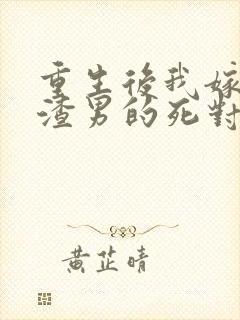 重生後我嫁
渣男的死對
黃芷晴